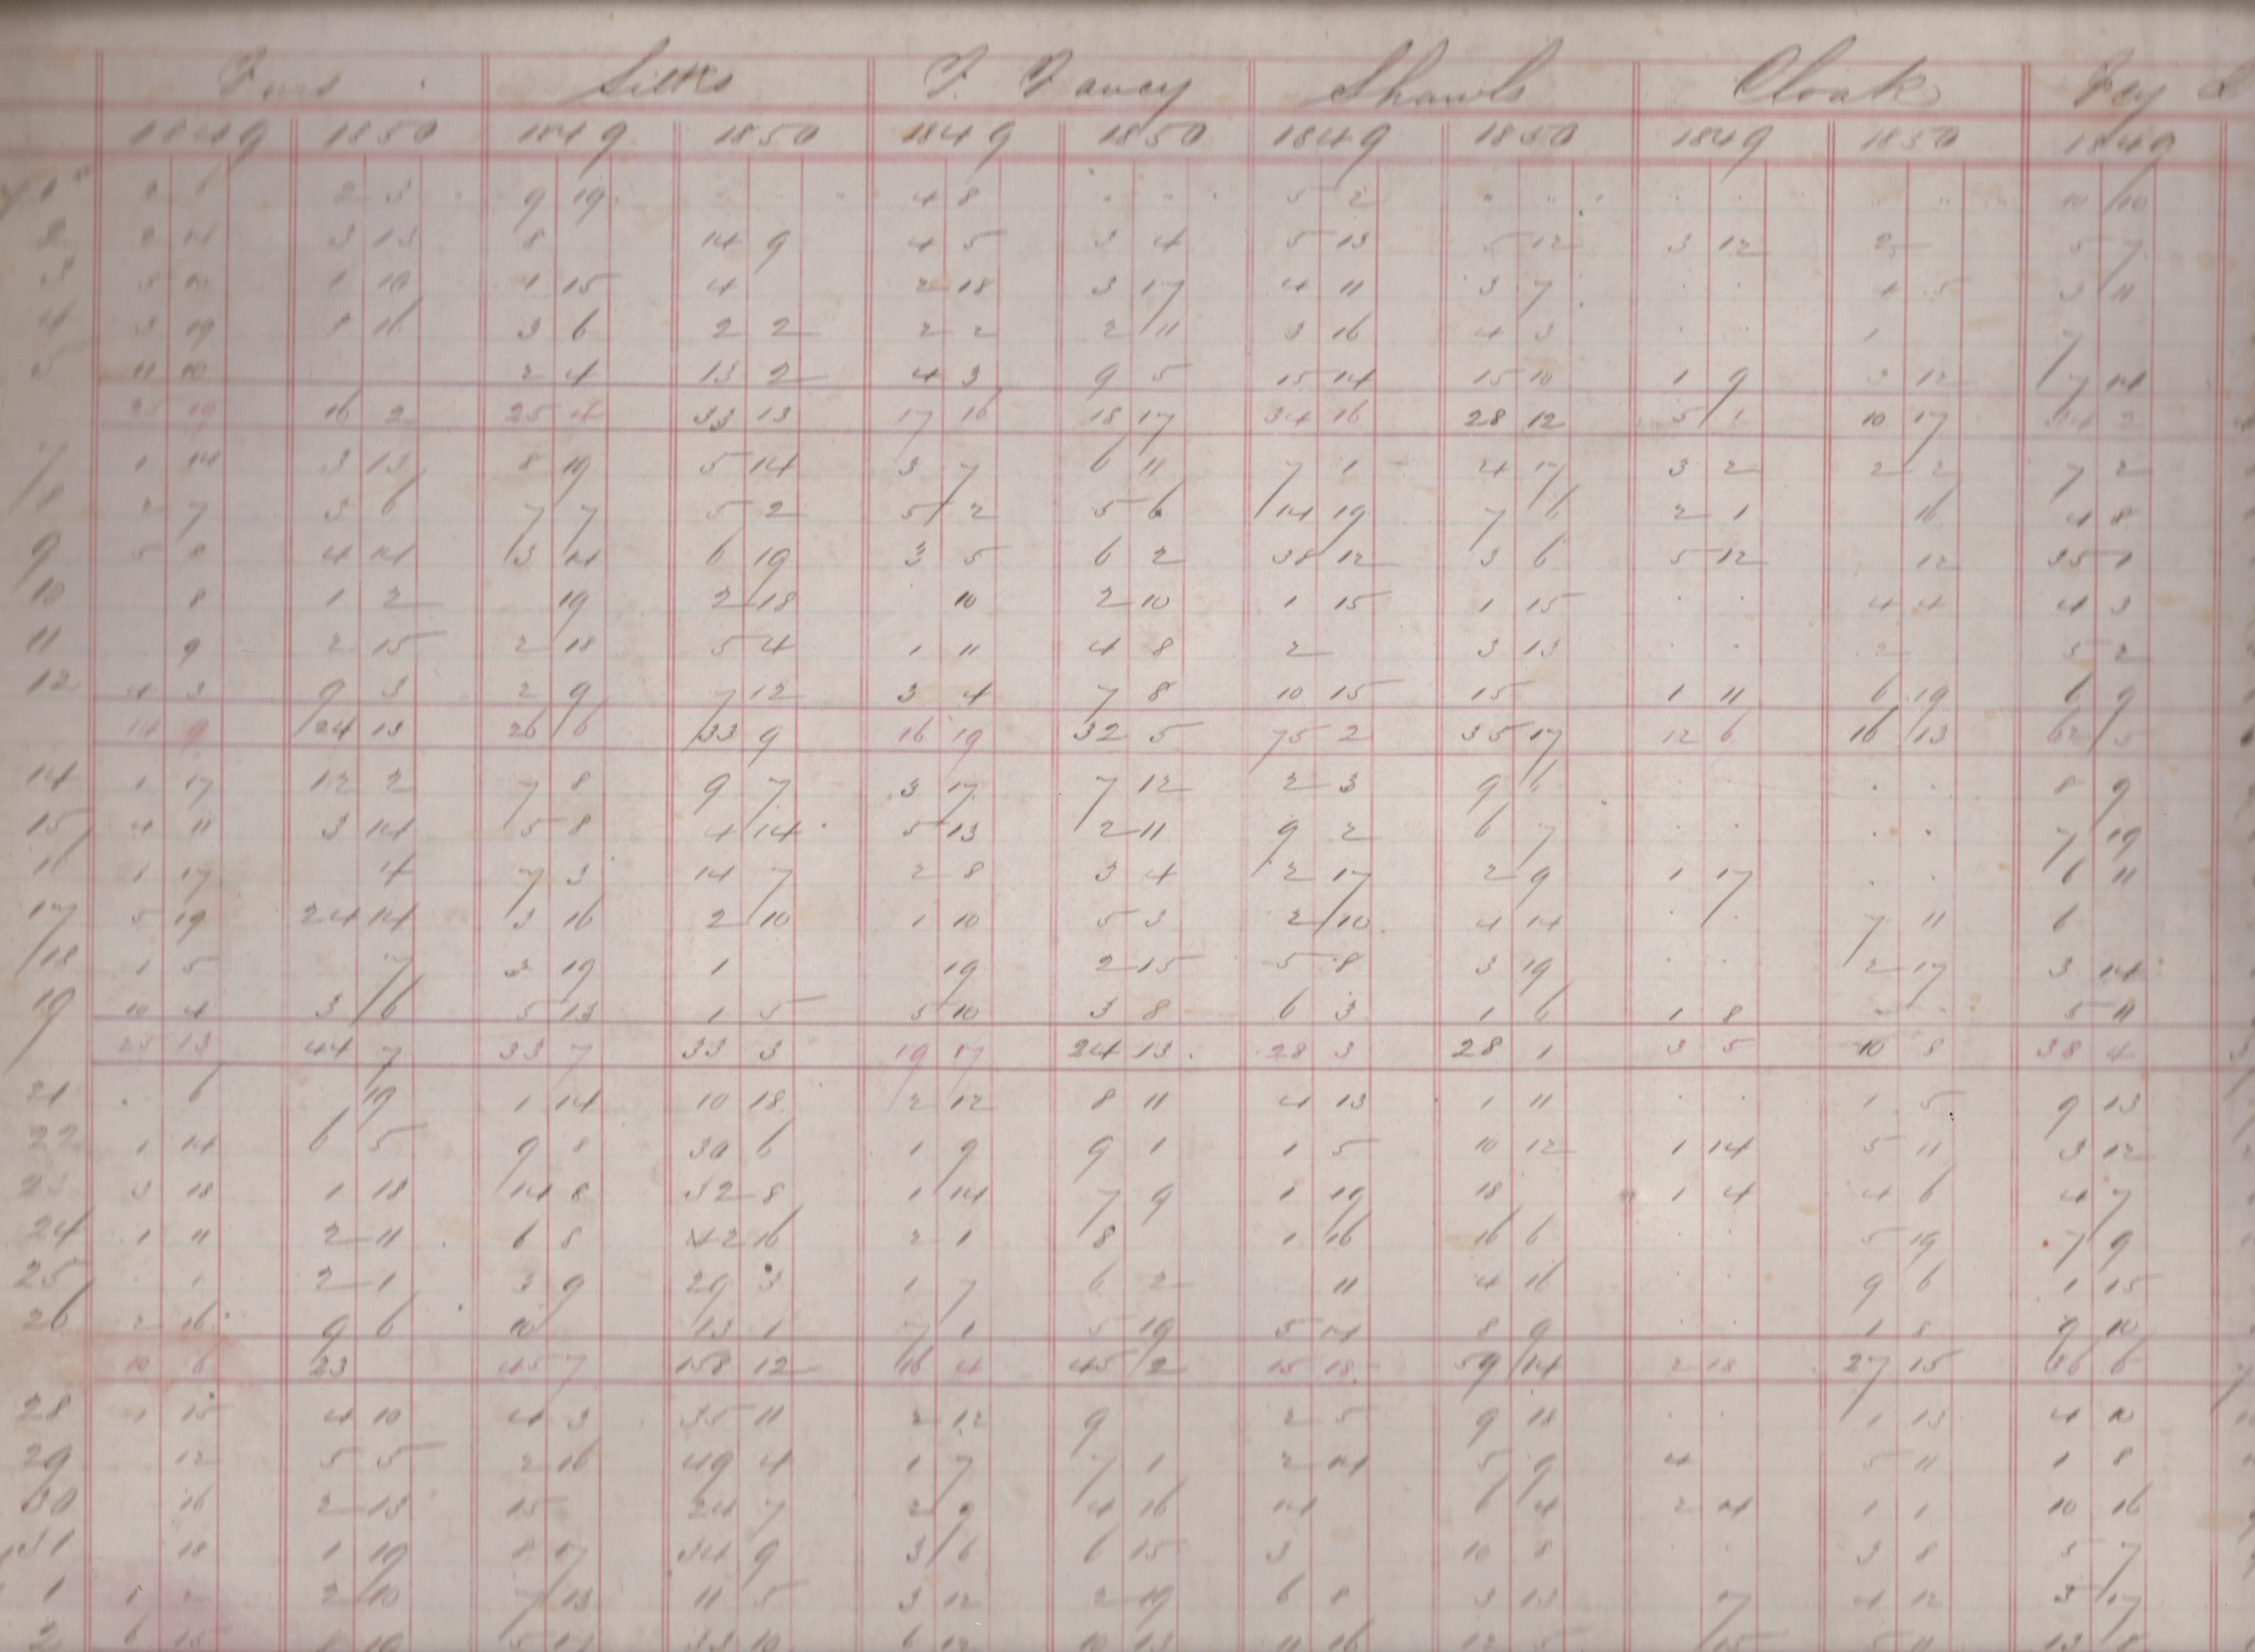 Furs Silks F. Fancy Shawls Cloak Fcy
1849 1850 1849 1850 1849 1850 1849 1850 1849 1850 1849
1 2 3 9 19 4 8 5 2 " " 10 10
2 2 14 3 13 8 14 9 4 5 3 4 5 13 5 12 3 12 2 5 7
3 5 10 1 10 1 15 4 2 18 3 17 4 11 3 7 4 5 3 11
4 3 19 8 16 3 6 2 2 2 2 2 11 3 16 4 3 1 7
5 11 10 2 4 13 2 4 3 9 5 15 14 15 10 1 9 3 12 7 14
25 19 16 2 25 4 33 13 17 16 18 17 34 16 28 12 5 1 10 17 34 2
7 1 14 3 13 8 19 5 14 3 7 6 11 7 1 4 17 3 2 2 2 7 2
8 2 7 3 6 7 7 5 2 5 2 5 6 14 19 7 6 2 1 16 4 8
9 5 8 4 14 3 14 6 19 3 5 6 2 38 12 3 6 5 12 12 35 1
10 8 1 2 19 2 18 10 2 10 1 15 1 15 4 4 4 3
11 9 2 15 2 18 5 4 1 11 4 8 2 3 13 2 5 2
12 4 3 9 3 2 9 7 12 3 4 7 8 10 15 15 1 11 6 19 6 9
14 9 24 13 26 6 33 9 16 19 32 5 75 2 35 17 12 6 16 13 62 5
14 1 17 12 2 7 8 9 7 3 17 7 12 2 3 9 6 8 9
15 4 11 3 14 5 8 4 14 5 13 2 11 9 2 6 7 7 19
16 1 17 4 7 3 14 7 2 8 3 4 2 17 2 9 1 17 6 11
17 5 19 24 14 3 16 2 10 1 10 5 3 2 10 4 14 7 11 6
18 1 5 7 3 19 1 19 2 15 5 8 3 19 2 17 3 14
19 10 4 3 6 5 13 1 5 5 10 3 8 6 3 1 6 1 8 5 11
25 13 44 7 33 7 33 3 19 17 24 13 28 3 28 1 3 5 10 8 38 4
21 6 19 1 14 10 18 2 12 8 11 4 13 1 11 1 5 9 13
22 1 14 6 5 9 8 30 6 1 9 9 1 1 5 10 12 1 14 5 11 3 12
23 3 18 1 18 14 8 32 8 1 14 7 9 1 19 18 1 4 4 6 4 7
24 1 11 2 11 6 8 42 16 2 1 8 1 16 16 6 5 19 7 9
25 1 2 1 3 9 29 3 1 7 6 2 11 4 16 9 6 1 15
26 2 16 9 6 10 13 1 7 1 5 19 5 14 8 9 1 8 9 10
10 6 23 45 7 158 12 16 4 45 2 15 18 59 14 2 18 27 15 36 6
28 4 15 4 10 4 3 35 11 2 12 9 2 5 9 18 1 13 4 10
29 12 5 5 2 16 49 4 1 7 7 1 2 14 5 9 4 5 11 1 8
30 16 2 13 15 24 7 2 9 4 16 14 6 4 2 14 1 1 10 16
31 18 1 19 8 17 34 9 3 6 6 15 3 10 8 3 8 5 7
1 1 2 2 10 7 13 11 5 3 12 2 19 6 8 3 13 17 4 12 3 17
2 6 15 33 10 11 16 12 5